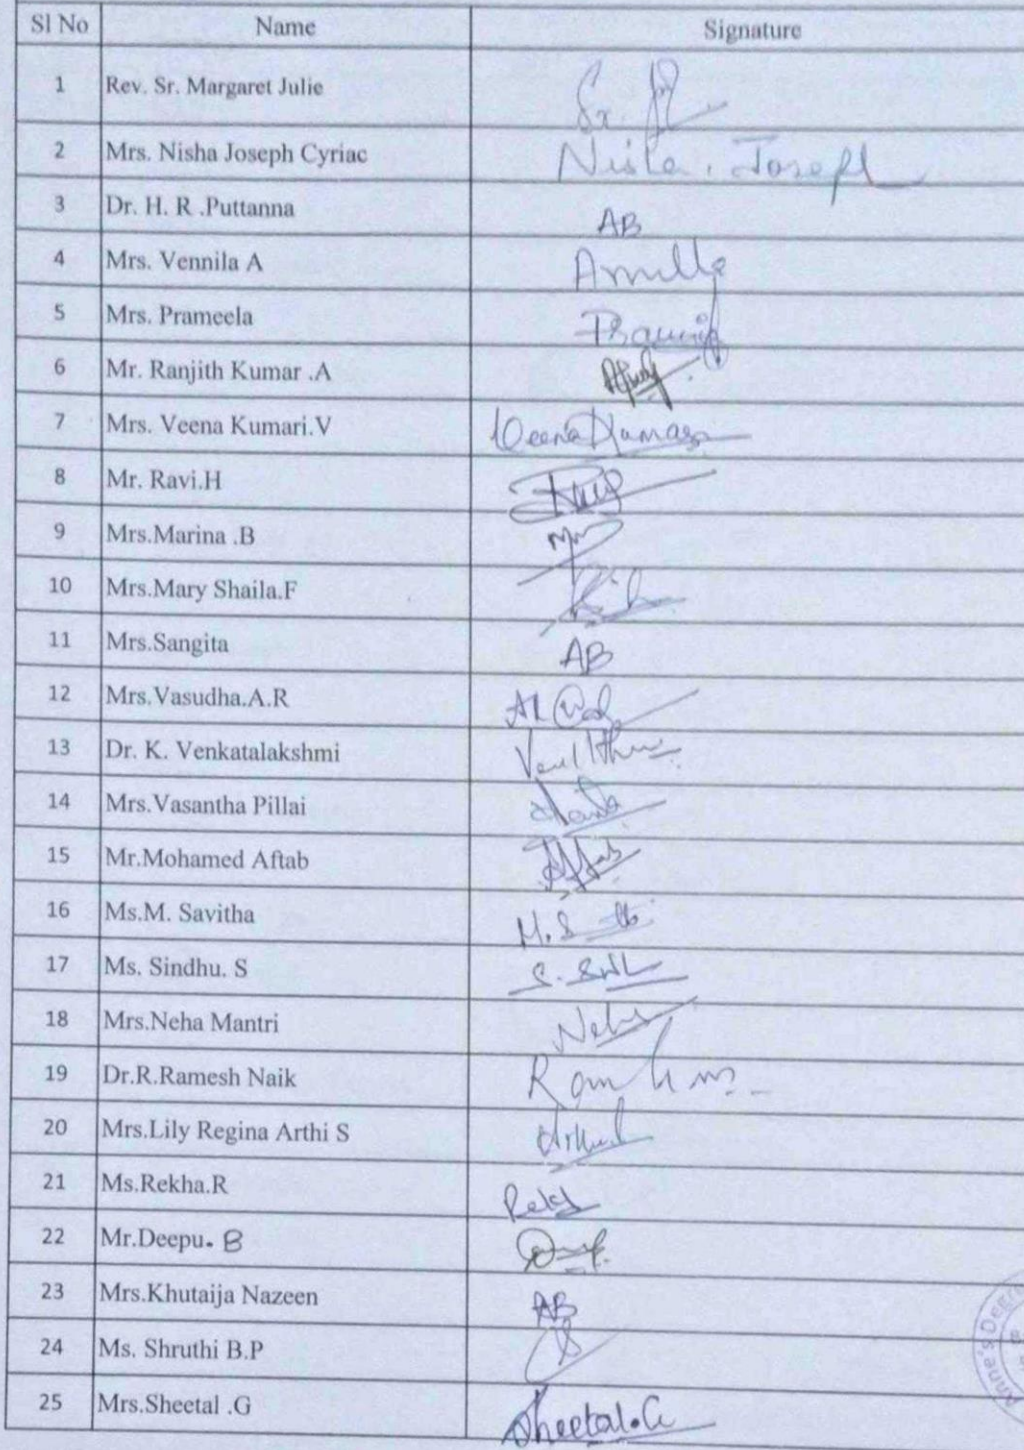 Sl No Name Signature
1 Rev. Sr. Margaret Julie Sr.
2 Mrs. Nisha Joseph Cyriac Nisha . Joseph
3 Dr. H. R .Puttanna AB
4 Mrs. Vennila A
5 Mrs. Prameela
6 Mr. Ranjith Kumar .A
7 Mrs. Veena Kumari.V Veena Kumari
8 Mr. Ravi.H
9 Mrs.Marina .B
10 Mrs.Mary Shaila.F
11 Mrs.Sangita AB
12 Mrs.Vasudha.A.R
13 Dr. K. Venkatalakshmi
14 Mrs.Vasantha Pillai
15 Mr.Mohamed Aftab Aftab
16 Ms.M. Savitha
17 Ms. Sindhu. S
18 Mrs.Neha Mantri Neha
19 Dr.R.Ramesh Naik
20 Mrs.Lily Regina Arthi S
21 Ms.Rekha.R
22 Mr.Deepu. B
23 Mrs.Khutaija Nazeen AB
24 Ms. Shruthi B.P
25 Mrs.Sheetal .G Sheetal.G